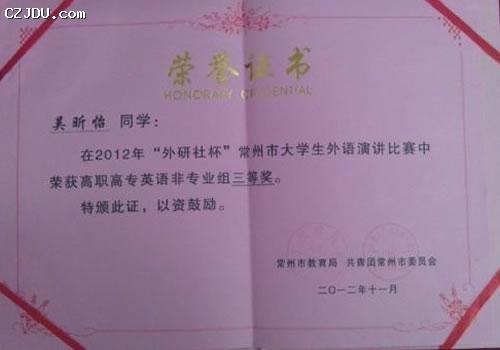 CZJDU.COM
荣誉证书
HONORARY CREDENTIAL
吴昕怡 同学：
在2012年“外研社杯”常州市大学生外语演讲比赛中
荣获高职高专英语非专业组三等奖。
特颁此证，以资鼓励。
常州市教育局 共青团常州市委员会
二〇一二年十一月